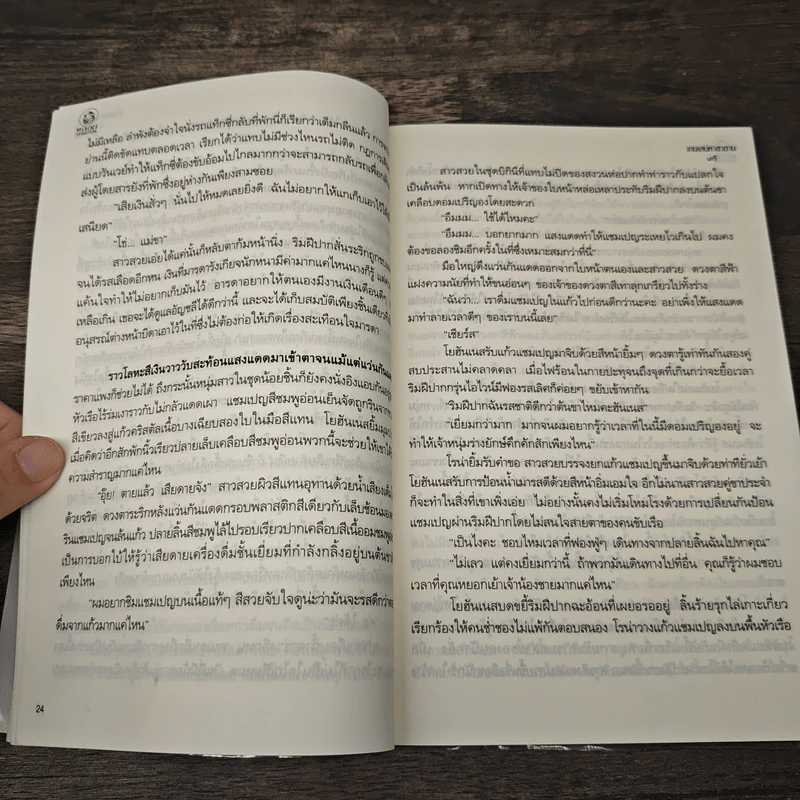 ไม่มีเหลือ ลำพังต้องจำใจนั่งรถแท็กซี่กลับที่พักนี่ก็เรียกว่าเต็มกลืนแล้ว การจราจร
ย่านนี้ติดขัดแทบตลอดเวลา เรียกได้ว่าแทบไม่มีช่วงไหนรถไม่ติด กฎการเดินรถ
แบบวันเวย์ทำให้แท็กซี่ต้องขับอ้อมไปไกลมากกว่าจะสามารถกลับรถเพื่อกลับ
ส่งผู้โดยสารยังที่พักซึ่งอยู่ห่างกันเพียงสามซอย
“เสียเงินสิ้วๆ นั่นไปให้หมดเลยยิ่งดี ฉันไม่อยากให้แกเก็บเอาไว้
เสนียด”
“โธ่... แม่ขา”
สาวสวยเอ่ยได้แค่นั้นก็หลับตาก้มหน้านิ่ง ริมฝีปากสั่นระริกถูก
จนได้รสเลือดอีกหน เงินที่มารดารังเกียจนักหนามีค่ามากแค่ไหนนางก็รู้
แค้นใจทำให้ไม่อยากเก็บมันไว้ อารดาอยากให้ตนเองมีงานเงินเดือนดีๆ
เหลือเกิน เธอจะได้ดูแลอัญชลีได้ดีกว่านี้ และจะได้เก็บสมบัติเพียงชิ้นเดียว
อนุสรณ์ต่างหน้าบิดาเอาไว้ในที่ซึ่งไม่ต้องก่อให้เกิดเรื่องสะเทือนใจมารดา
ราวโลหะสีเงินวาววับสะท้อนแสงแดดมาเข้าตาจนแม้แต่แว่นกันแดด
ราคาแพงก็ช่วยไม่ได้ ถึงกระนั้นหนุ่มสาวในชุดน้อยชิ้นก็ยังคงนั่งอิงแอบกัน
หัวเรือไร้ร่มเงาราวกับไม่กลัวแดดเผา แชมเปญสีชมพูอ่อนเย็นจัดถูกรินจาก
สีเขียวลงสู่แก้วคริสตัลเนื้อบางเฉียบสองใบในมือสีแทน โยฮันเนสยิ้ม
เมื่อคิดว่าอีกสักพักนิ้วเรียวปลายเล็บเคลือบสีชมพูอ่อนพวกนี้จะช่วยให้เขา
ความสำราญมากแค่ไหน
“อุ๊ย! ตายแล้ว เสียดายจัง” สาวสวยผิวสีแทนอุทานด้วยน้ำเสียง
ด้วยจริต ดวงตาระริกหลังแว่นกันแดดกรอบพลาสติกสีเดียวกับเล็บช้อนมอง
รินแชมเปญจนล้นแก้ว ปลายลิ้นสีชมพูไล้ไปรอบเรียวปากเคลือบสีเนื้ออมชมพู
เป็นการบอกใบ้ให้รู้ว่าเสียดายเครื่องดื่มชั้นเยี่ยมที่กำลังกลิ้งอยู่บนต้นขา
เพียงไหน
“ผมอยากชิมแชมเปญบนเนื้อแท้ๆ สีสวยจับใจดูน่ะว่ามันจะรสดีกว่า
ดื่มจากแก้วมากแค่ไหน”
24
เกมเสน่หาซาตาน
นที
สาวสวยในชุดบิกินีที่แทบไม่ปิดของสงวนห่อปากทำท่าราวกับแปลกใจ
เป็นล้นพ้น หากเปิดทางให้เจ้าของใบหน้าหล่อเหลาประทับริมฝีปากลงบนต้นขา
เคลือบดอมเปริญองโดยสะดวก
“อืมมม... ใช้ได้ไหมคะ”
“อืมมม... บอกยากมาก แสงแดดทำให้แชมเปญระเหยไวเกินไป ผมคง
ต้องขอลองชิมอีกครั้งในที่ซึ่งเหมาะสมกว่าที่นี่”
มือใหญ่ดึงแว่นกันแดดออกจากใบหน้าตนเองและสาวสวย ดวงตาสีฟ้า
แฝงความนัยที่ทำให้ขนอ่อนๆ ของเจ้าของดวงตาสีเทาลุกเกรียวไปทั้งร่าง
“ฉันว่า... เราดื่มแชมเปญในแก้วไปก่อนดีกว่านะคะ อย่าเพิ่งให้แสงแดด
มาทำลายเวลาดีๆ ของเราบนนี้เลย”
“เชียร์ส”
โยฮันเนสรับแก้วแชมเปญมาจิบด้วยสีหน้ายิ้มๆ ดวงตารู้เท่าทันกันสองคู่
สบประสานไม่คลาดคลา เมื่อไฟร้อนในกายปะทุจนถึงจุดที่เกินกว่าจะยื้อเวลา
ริมฝีปากกรุ่นไอไวน์มีฟองรสเลิศก็ค่อยๆ ขยับเข้าหากัน
“ริมฝีปากฉันรสชาติดีกว่าต้นขาไหมคะฮันเนส”
“เยี่ยมกว่ามาก มากจนผมอยากรู้ว่าเวลาที่ในนี้มีดอมเปริญองอยู่ จะ
ทำให้เจ้าหนุ่มร่างยักษ์คึกคักสักเพียงไหน”
โรน่ายิ้มรับคำขอ สาวสวยบรรจงยกแก้วแชมเปญขึ้นมาจิบด้วยท่าที่ยั่วเย้า
โยฮันเนสรับการป้อนน้ำเมารสดีด้วยสีหน้าอิ่มเอมใจ อีกไม่นานสาวสวยคู่ขาประจำ
ก็จะทำในสิ่งที่เขาเพิ่งเอ่ย ไม่อย่างนั้นคงไม่เริ่มโหมโรงด้วยการเปลี่ยนกันป้อน
แชมเปญผ่านริมฝีปากโดยไม่สนใจสายตาของคนขับเรือ
“เป็นไงคะ ชอบไหมเวลาที่ฟองฟู่ๆ เดินทางจากปลายลิ้นฉันไปหาคุณ”
“ไม่เลว แต่คงเยี่ยมกว่านี้ ถ้าพวกมันเดินทางไปที่อื่น คุณก็รู้ว่าผมชอบ
เวลาที่คุณหยอกเย้าเจ้าน้องชายมากแค่ไหน”
โยฮันเนสบดขยี้ริมฝีปากฉะอ้อนที่เผยอรออยู่ ลิ้นร้ายรุกไล่เกาะเกี่ยว
เรียกร้องให้คนช่ำชองไม่แพ้กันตอบสนอง โรน่าวางแก้วแชมเปญลงบนพื้นหัวเรือ